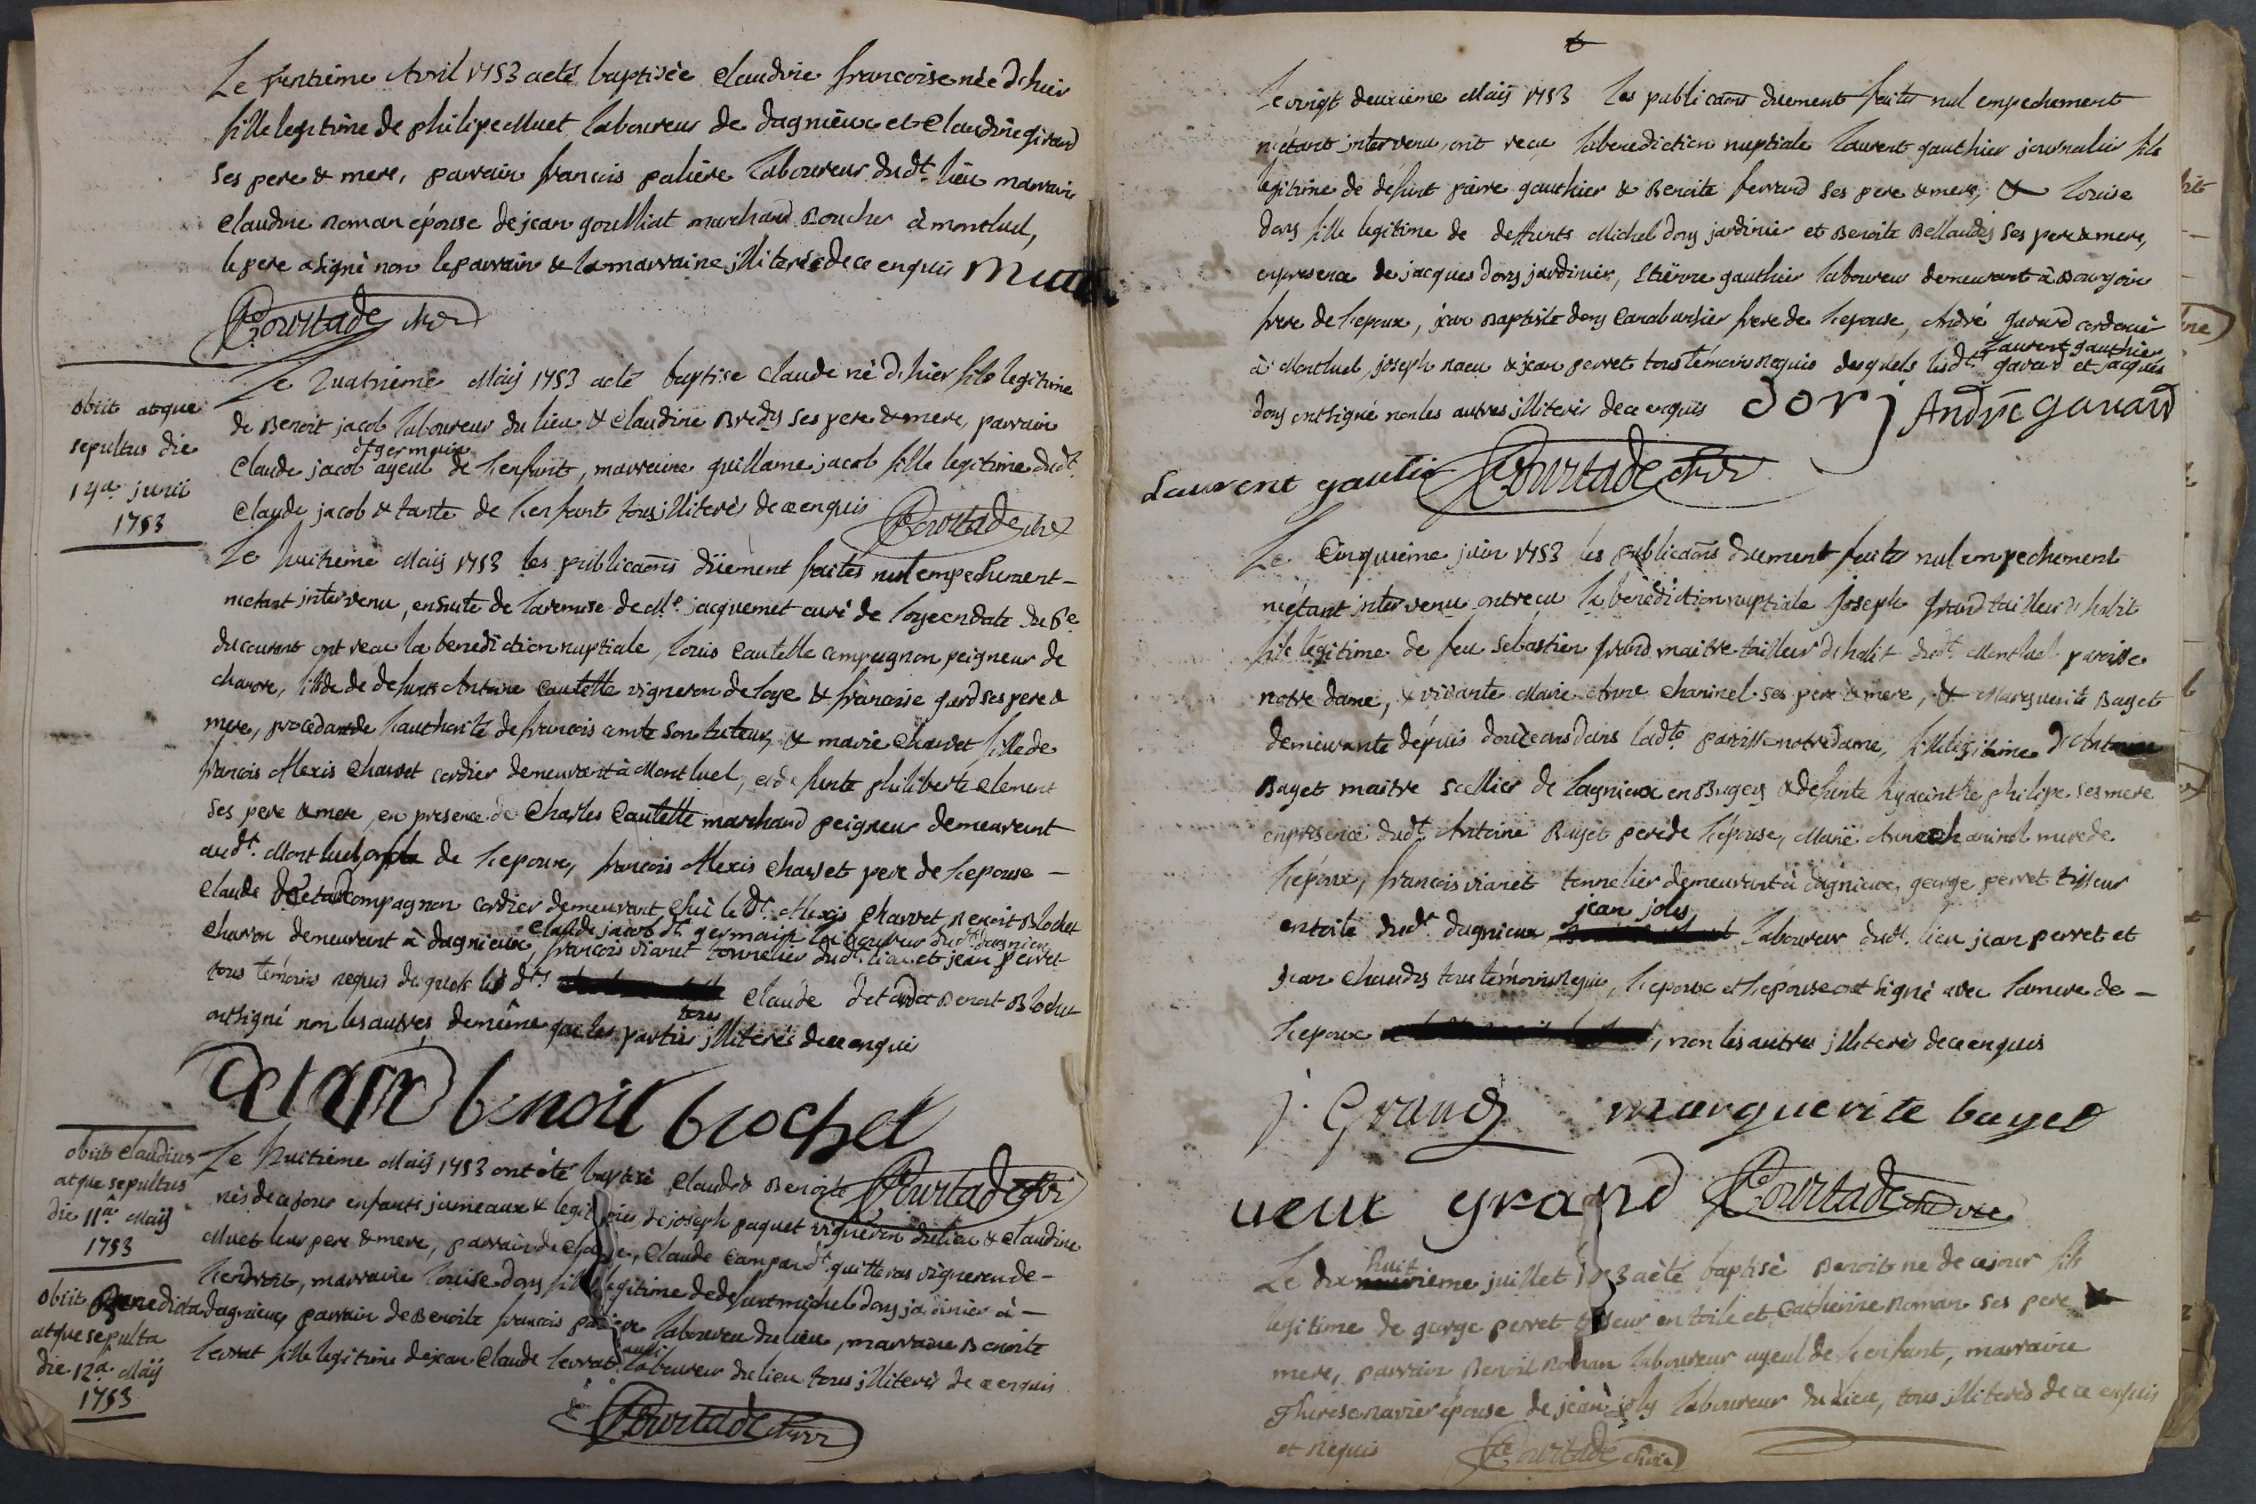 Le trentième Avril 1753 a eté baptisée Claudine francoise née d'hier
fille legitime de philipe Muet laboureur de dagnieux et Claudine girard
ses pere & mere, parrain francois palière laboureur dudt. lieu marraine
Claudine Roman épouse de jean goulliat marchand Boucher à montluel,
le pere a signé non le parrain & la marraine illiterés de ce enquis Muet
Courtade
Le Quatrième Maij 1753 a eté baptise Claude né d'hier fils legitime
de Benoit jacob laboureur du lieu & Claudine Bredy ses pere & mere, parrain
dt germain
Claude jacob ayeul de l'enfant, marreine guillame jacob fille legitime dudt.
Claude jacob & tante de l'enfant tous illiterés de ce enquis Courtade
obiit atque
sepultus die
14a. junii
1753
Le huitième Maij 1753 les publicaons düement faites nul empechement
n'etant intervenu, ensuite de la remise de Me. jacquemet curé de loye en date du 6e.
du courant ont recu la benediction nuptiale, louis Cautelle compagnon peigneur de
chanvre, fils de defunt Antoine Cautelle vigneron de loye & francoise gard ses pere &
mere, procedant de l'authorité de francois comte son tuteur, & marie Charvet fille de
francois Alexis Charvet cordier demeurant à Montluel, et defunte philiberte Clement
ses pere & mere, en presence de Charles Cautelle marchand peigneur demeurant
audt. Montluel de l'epoux, francois Alexis Charvet pere de l'epouse
Claude Detard compagnon cordier demeurant chez ledt. Alexis Charvet Benoit Blochet
Claude jacob dt. germain laboureur dudt. dagnieux
charon demeurant à dagnieux, francois vianet tonnelier dudt. lieu et jean perret
tous temoins requis desquels lesdts. Claude detard et Benoit Blochet
tous
ont signé non les autres de même que les parties illiterés de ce enquis
Detard benoit blochet
Courtade
Le huitième Maij 1753 ont été baptisé Claude & Benoite
nés de ce jour enfants jumeaux & legitimes de joseph paquet vigneron du lieu & Claudine
Muet leur pere & mere, parrain de Claude, Claude Campan dt. quitteras vigneron de
l'endroit, marraine louise dory fille legitime de defunt michel dory jardinier à
dagnieux, parrain de Benoite francois palière laboureur du lieu, marraine Benoite
levrat fille legitime de jean Claude levrat aussi laboureur du lieu tous illiterés de ce enquis
Courtade
obiit Claudius
atque sepultus
die 11a. Maij
1753
obiit Benedicta
atque sepulta
die 12a. Maij
1753
Le vingt deuxieme Maij 1753 les publicaons düement faites nul empechement
n'etant intervenu, ont recu la benediction nuptiale laurent gauthier journalier fils
legitime de defunt pierre gauthier & Benoite ferrand ses pere & mere, & louise
dory fille legitime de deffunts Michel dory jardinier et Benoite Bellandes ses pere & mere,
en presence de jacques dory jardinier, Etienne gauthier laboureur demeurant à Bourgoin
frere de l'epoux, jean Baptiste dory Cabaretier frere de l'epouse, André gavard cordonier
laurent gauthier
à Montluel, joseph nacu & jean perret tous temoins requis desquels lesdt. gavard et jacques
dory ont signé non les autres illiterés de ce enquis dorj André gavard
Laurent gautie Courtade
Le Cinquième juin 1753 les publicaons duement faites nul empechement
n'etant intervenu ont recu la bénédiction nuptiale joseph grand tailleur d'habit
fils legitime de feu sebastien grand maitre tailleur d'habit dudt. Montluel paroisse
notre dame, & vivante Marie Anne Chaninel ses pere & mere, & Marguerite Bayet
demeurante dépuis douze ans dans ladte. paroisse notre dame, fille legitime d'Antoine
Bayet maitre scellier de lagnieux en Bugey & defunte hyacinthe philipe ses mere
en presence dudt. Antoine Bayet pere de l'epouse, Marie Anne Chaninel mere de
l'époux, francois vianet tonnelier demeurant à dagnieux, george perret tisseur
jean joly
en toile dudt. dagnieux laboureur dudt. lieu jean perret et
jean Chaudes tous temoins requis, l'epoux et l'epouse ont signé avec la mere de
l'epoux, non les autres illiterés de ce enquis
j. Grand marguerite bayet
veuve grand Courtade
huit
Le dix ieme juillet 1753 a èté baptisé Benoit ne de ce jour fils
legitime de george perret tisseur en toile et Catherine Roman ses pere &
mere, parrain Benoit Roman laboureur ayeul de l'enfant, marraine
Therese navier épouse de jean joly laboureur du lieu, tous illiterés de ce enquis
et requis Courtade